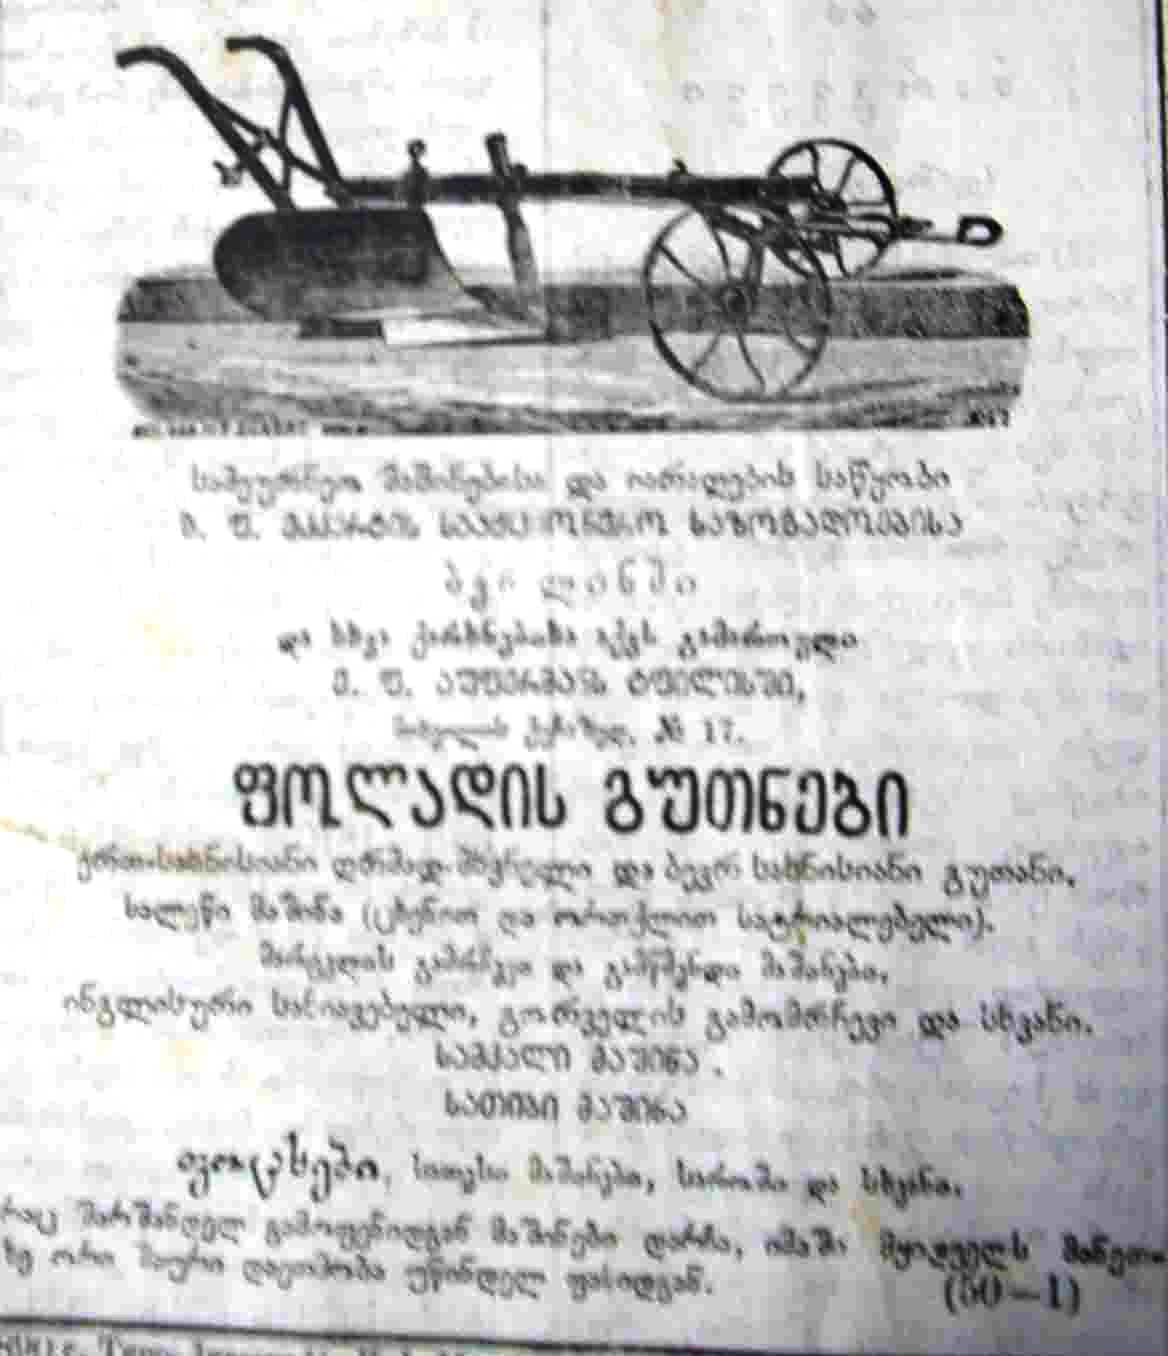 სამეურნეო მაშინებისა და იარაღების საწყობი
ი. ფ. ეკკერტის სააქციონერო საზოგადოებისა
ბერლინში
და სხვა ქარხნებისა აქვს გამართული
ე. ფ. აუფერმან ტფილისში,
ქუჩაზედ, № 17.
ფოლადის გუთნები
ერთ-სახნისიანი ღრმად-მხვნელი და ბევრ სახნისიანი გუთანი.
სალეწი მაშინა (ცხენით და ორთქლით სატრიალებელი).
მარცვლის გამრჩევი და გამწმენდი მაშინები.
ინგლისური სანიავებელი, გორველის გამომრჩევი და სხვანი.
სამკალი მაშინა.
სათიბი მაშინა
ფოცხები, სათესი მაშინები, სარომი და სხვანი.
რაც შარშანდელ გამოფენიდგან მაშინები დარჩა, იმაში მყიდველს მანეთ-
ზე ორი შაური დაეთმობა უწინდელ ფასიდგან.
(50—1)